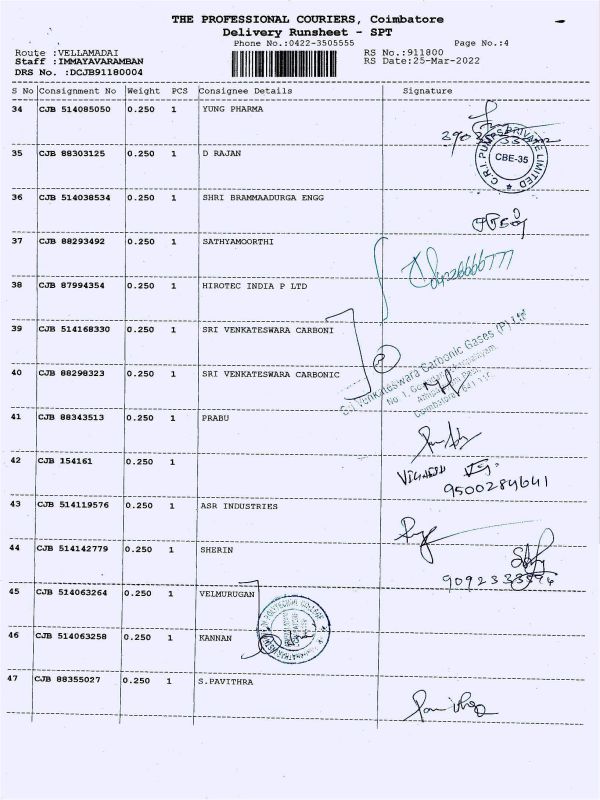 THE PROFESSIONAL COURIERS, Coimbatore
Delivery Runsheet - SPT
Phone No.:0422-3505555 Page No.:4
Route :VELLAMADAI RS No.:911800
Staff :IMMAYAVARAMBAN RS Date:25-Mar-2022
DRS No. :DCJB91180004
S No Consignment No Weight PCS Consignee Details Signature
34 CJB 514085050 0.250 1 YUNG PHARMA
35 CJB 88303125 0.250 1 D RAJAN
C.R.I. PUMPS PRIVATE LIMITED
CBE-35
36 CJB 514038534 0.250 1 SHRI BRAMMAADURGA ENGG
37 CJB 88293492 0.250 1 SATHYAMOORTHI
38 CJB 87994354 0.250 1 HIROTEC INDIA P LTD
39 CJB 514168330 0.250 1 SRI VENKATESWARA CARBONI
40 CJB 88298323 0.250 1 SRI VENKATESWARA CARBONIC
Sri Venkateswara Carbonic Gases (P) Ltd
41 CJB 88343513 0.250 1 PRABU
42 CJB 154161 0.250 1
9500284641
43 CJB 514119576 0.250 1 ASR INDUSTRIES
44 CJB 514142779 0.250 1 SHERIN
45 CJB 514063264 0.250 1 VELMURUGAN
46 CJB 514063258 0.250 1 KANNAN
47 CJB 88355027 0.250 1 S.PAVITHRA